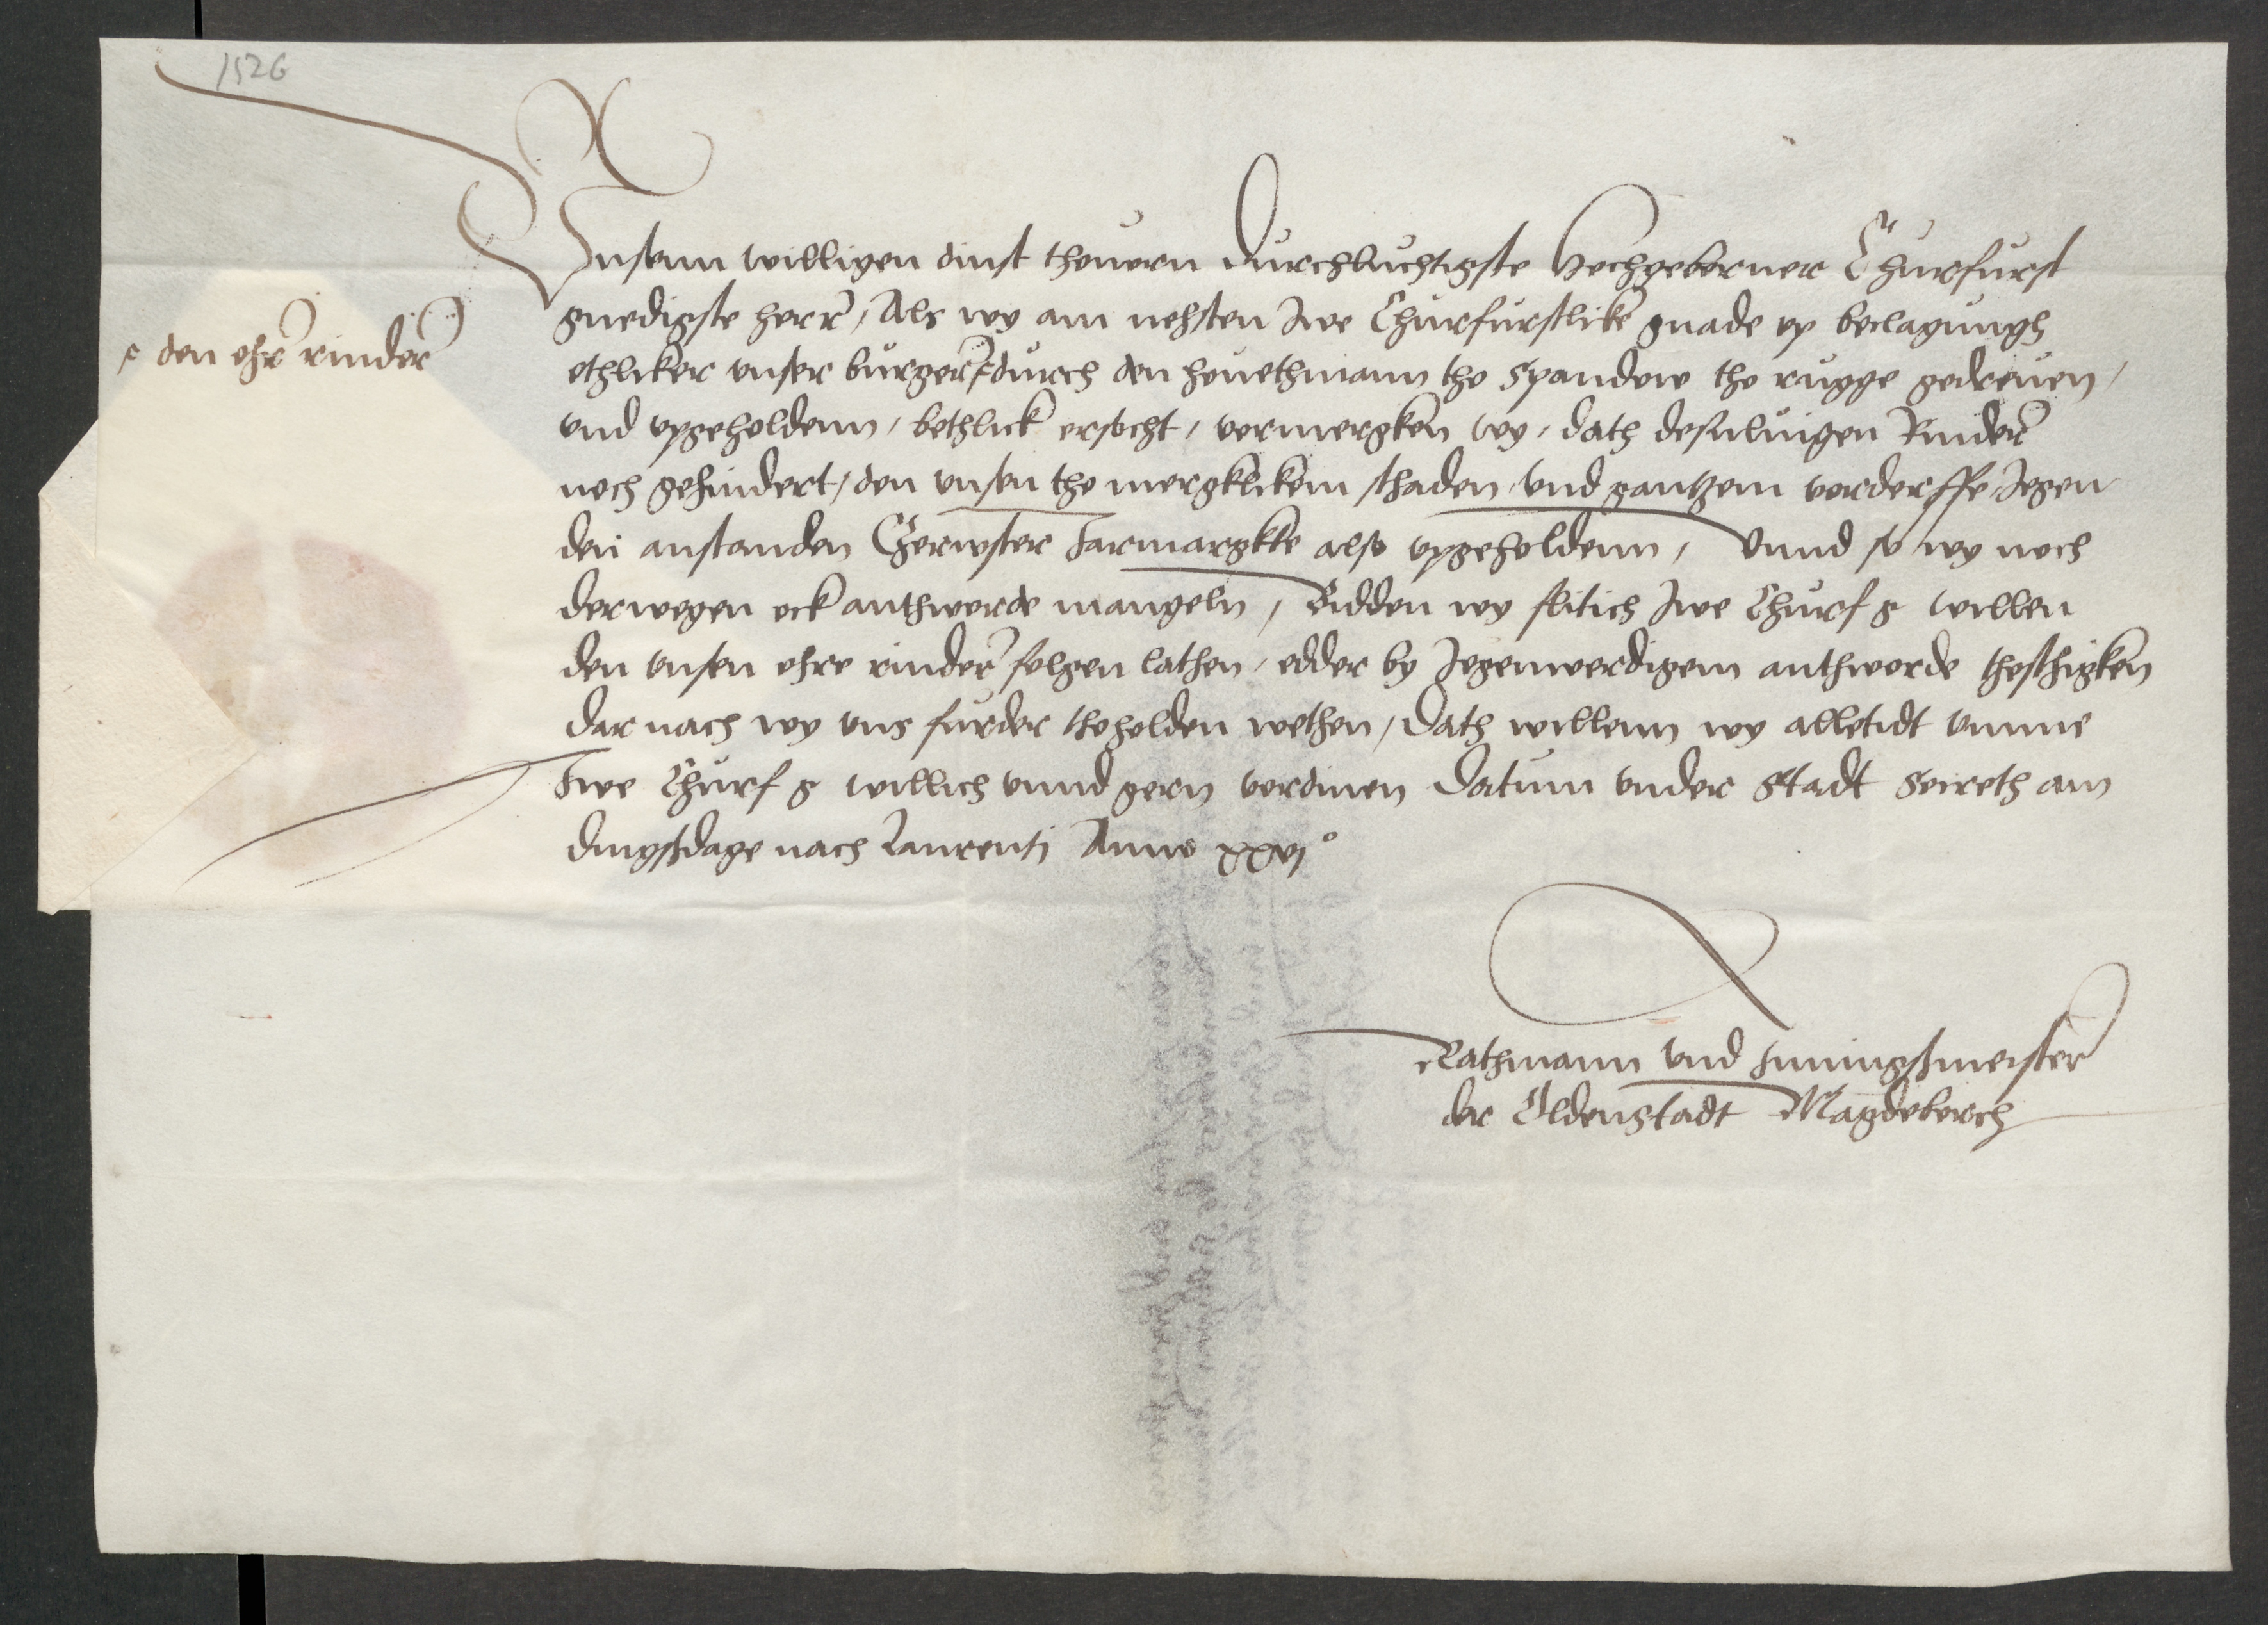 1526
Vnsenn willigen dinst thouorn Durchluchtigste Hochgeborner Churfurst
gnedigste herr, Als wy am nehsten Jwe Churfurstlike gnade vp beclagungh
ethliker vnser burger durch den houethmann tho Spandow tho rugge gedreuen,
den ehr rinder
vnd vpgeholdenn, bethlick ersocht, vormergken wy, dath desuluigen Rinder
noch gehindert, den vnsen tho mergklikem schaden vnd gantzem vorderffe Jegen
den anstanden Cerwster Jarmargkte also vpgeholdenn, Vnnd so wy noch
derwegen ock anthworde mangeln, Bidden wy flitich Jwe Churf g willen
den vnsen ehre rinder folgen lathen, edder by Jegenwerdigem anthworde thoschigken
dar nach wy vns furder tho holden wethen, Dath willenn wy alletidt vmme
Jwe Churf g willich vnnd gern vordinen Datum vnder Stadt Secreth am
dingstdage nach Laurentj Anno xxvj°
Rathmann vnd Inningsmeister
der Oldenstadt Magdeborch